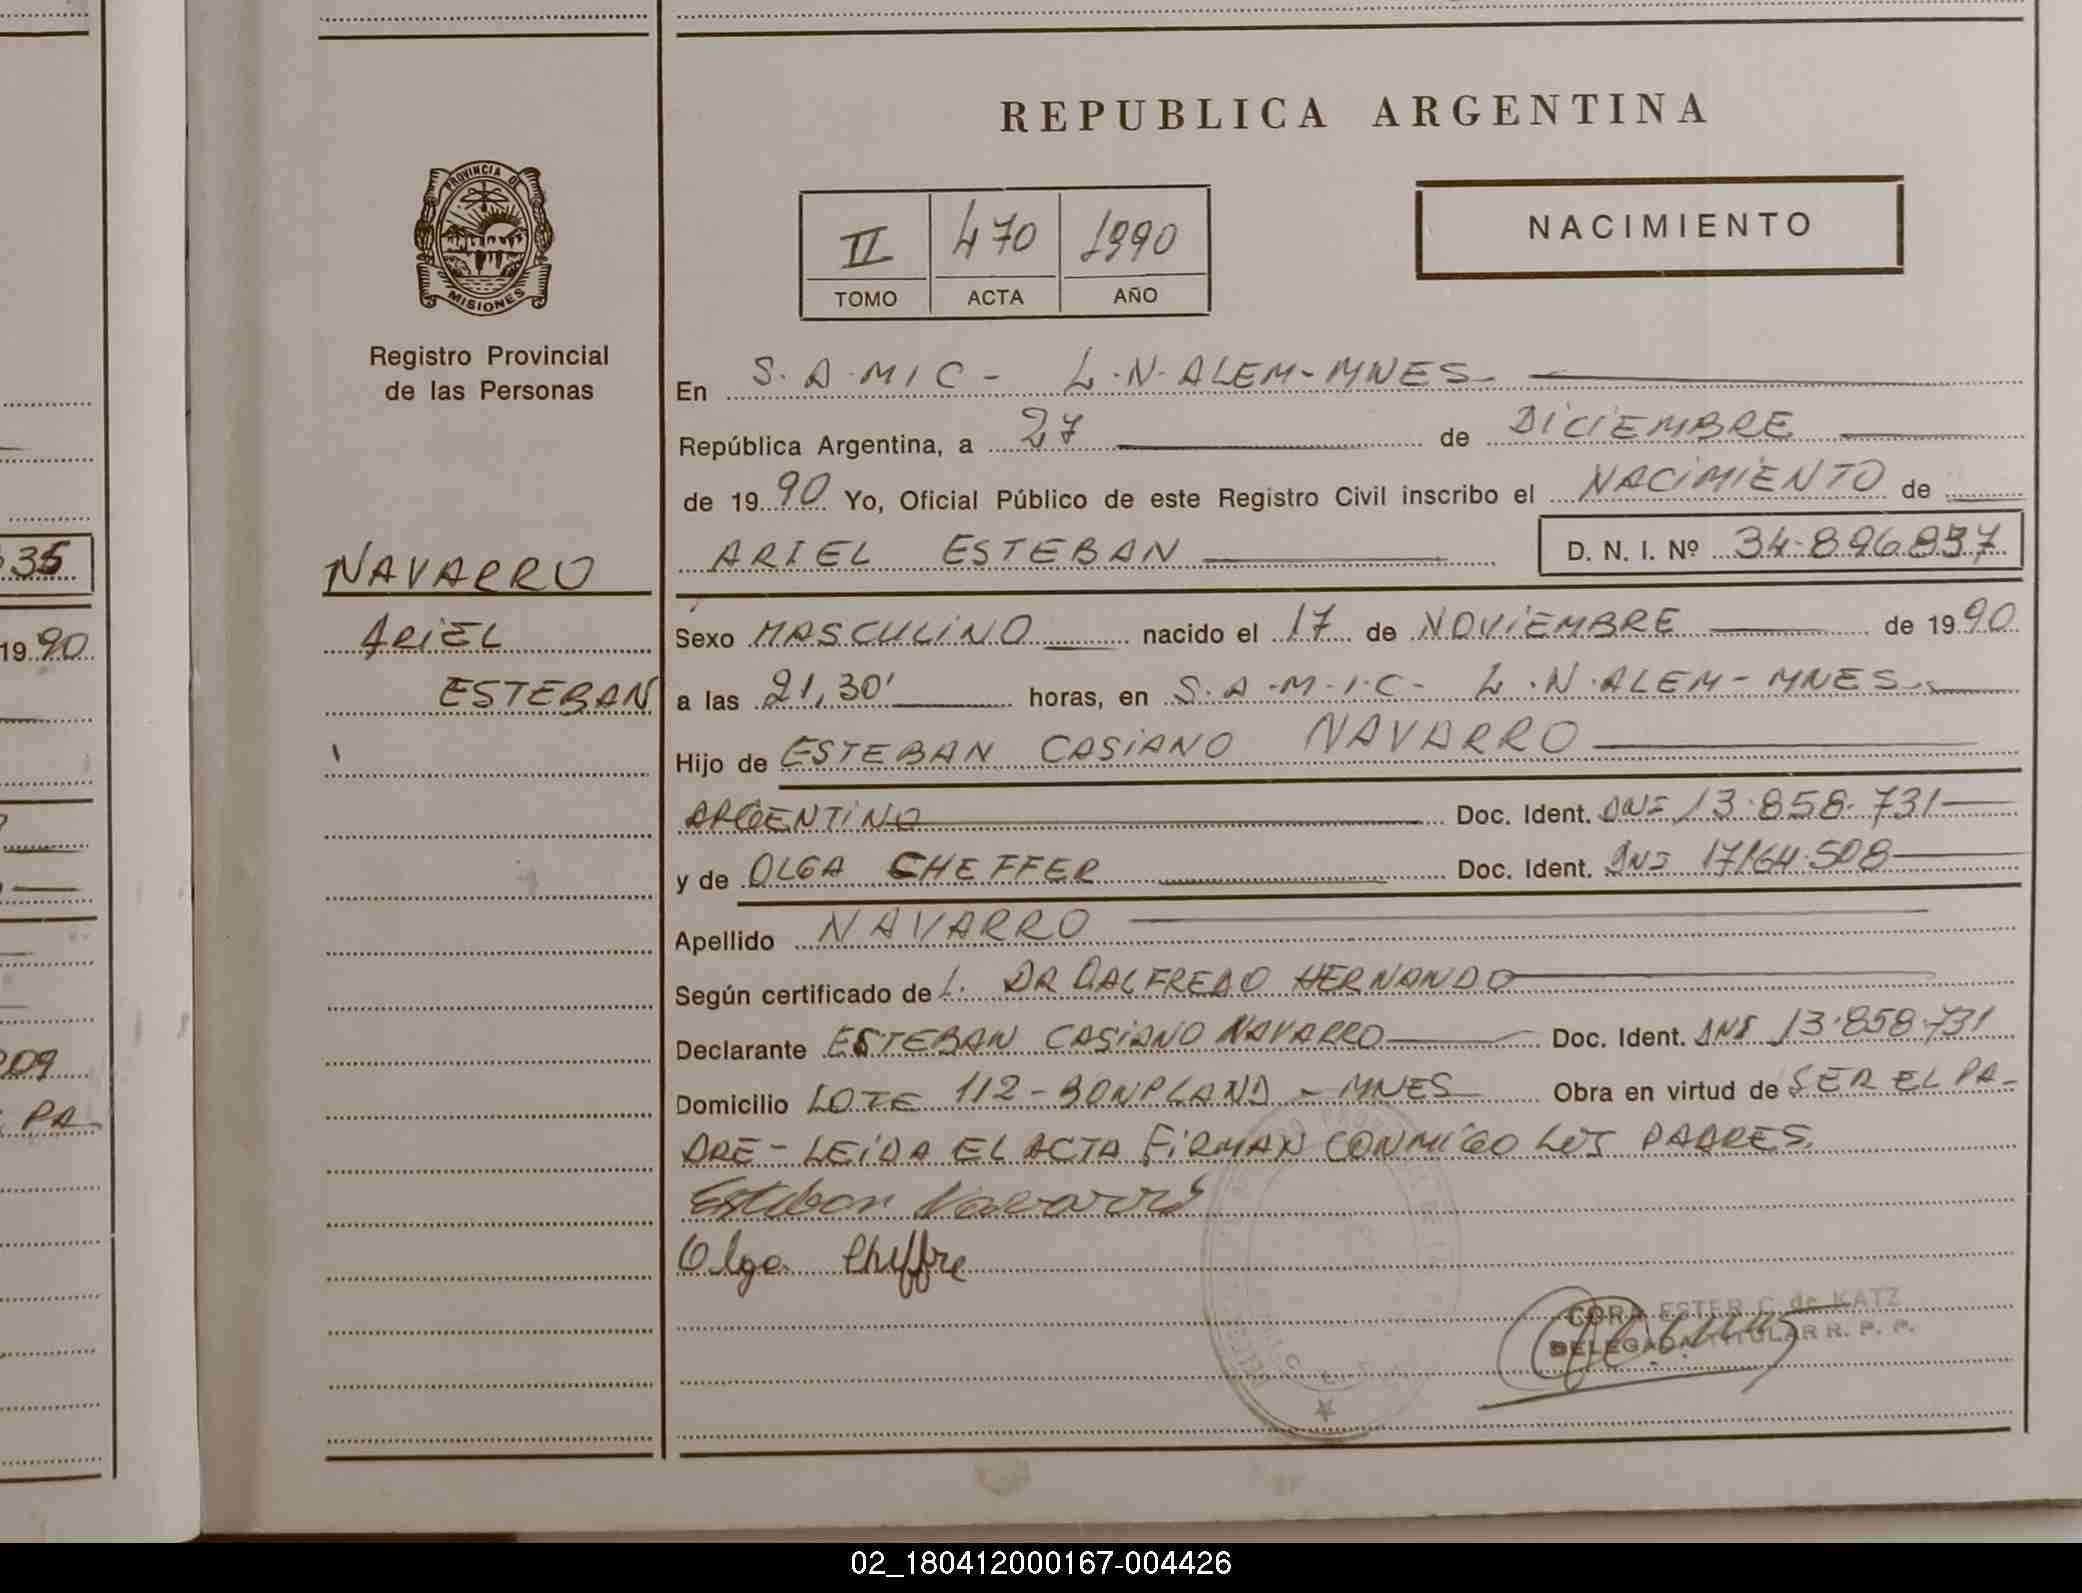 35
1990
209
PA
PROVINCIA DE
MISIONES
Registro Provincial
de las Personas
NAVARRO
ARIEL
ESTEBAN
REPUBLICA ARGENTINA
II 470 1990
TOMO ACTA AÑO
NACIMIENTO
En S.A.M.I.C- L.N.ALEM-MNES
República Argentina, a 27 de DICIEMBRE
de 1990 Yo, Oficial Público de este Registro Civil inscribo el NACIMIENTO de
ARIEL ESTEBAN D. N. I. Nº 34.896.837
Sexo MASCULINO nacido el 17 de NOVIEMBRE de 1990
a las 21,30' horas, en S.A.M.I.C- L.N.ALEM-MNES
Hijo de ESTEBAN CASIANO NAVARRO
ARGENTINO Doc. Ident. DNI 13.858.731
y de OLGA CHEFFER Doc. Ident. DNI 17164.508
Apellido NAVARRO
Según certificado de L. DR ALFREDO HERNANDO
Declarante ESTEBAN CASIANO NAVARRO Doc. Ident. DNI 13.858.731
Domicilio LOTE 112-BONPLAND-MNES Obra en virtud de SER EL PA-
DRE-LEIDA EL ACTA FIRMAN CONMIGO LOS PADRES.
Esteban Navarro
Olga Cheffre
ESTER C. de KATZ
DELEGADA TITULAR R. P. P.
02_180412000167-004426